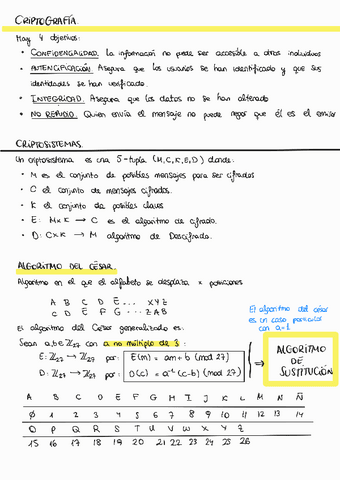 CRIPTOGRAFÍA.
Hay 4 objetivos:
• CONFIDENCIALIDAD. La información no puede ser accesible a otros individuos
• AUTENTIFICACIÓN. Asegura que los usuarios se han identificado y que sus
identidades se han verificado.
• INTEGRIDAD. Asegura que los datos no se han alterado
• NO REPUDIO. Quien envía el mensaje no puede negar que él es el emisor
CRIPTOSISTEMAS.
Un criptosistema es una 5-tupla (M,C,K,E,D) donde:
• M es el conjunto de posibles mensajes para ser cifrados
• C el conjunto de mensajes cifrados.
• K el conjunto de posibles claves
• E: M×K → C es el algoritmo de cifrado.
• D: C×K → M algoritmo de Descifrado.
ALGORITMO DEL CÉSAR.
Algoritmo en el que el alfabeto se desplaza n posiciones
A B C D E ... X Y Z
C D E F G ... Z A B
El algoritmo del césar
es un caso particular
con a=1
El algoritmo del César generalizado es:
Sean a,b∈ℤ27 con a no múltiplo de 3:
E: ℤ27 → ℤ27 por: E(m) = am+b (mod 27)
D: ℤ27 → ℤ27 por: D(c) = a⁻¹(c-b) (mod 27)
⇒ ALGORITMO
DE
SUSTITUCIÓN
A B C D E F G H I J K L M N Ñ
0 1 2 3 4 5 6 7 8 9 10 11 12 13 14
O P Q R S T U V W X Y Z
15 16 17 18 19 20 21 22 23 24 25 26